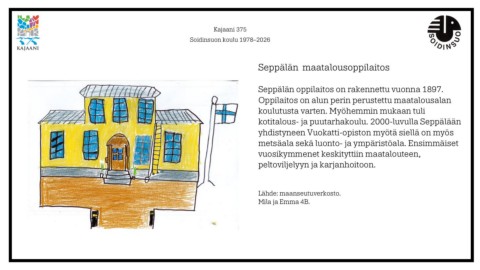 KAJAANI
Kajaani 375
Soidinsuon koulu 1978–2026
SOIDINSUO
Seppälän maatalousoppilaitos
Seppälän oppilaitos on rakennettu vuonna 1897.
Oppilaitos on alun perin perustettu maatalousalan
koulutusta varten. Myöhemmin mukaan tuli
kotitalous- ja puutarhakoulu. 2000-luvulla Seppälään
yhdistyneen Vuokatti-opiston myötä siellä on myös
metsäala sekä luonto- ja ympäristöala. Ensimmäiset
vuosikymmenet keskityttiin maatalouteen,
peltoviljelyyn ja karjanhoitoon.
Lähde: maanseutuverkosto.
Mila ja Emma 4B.